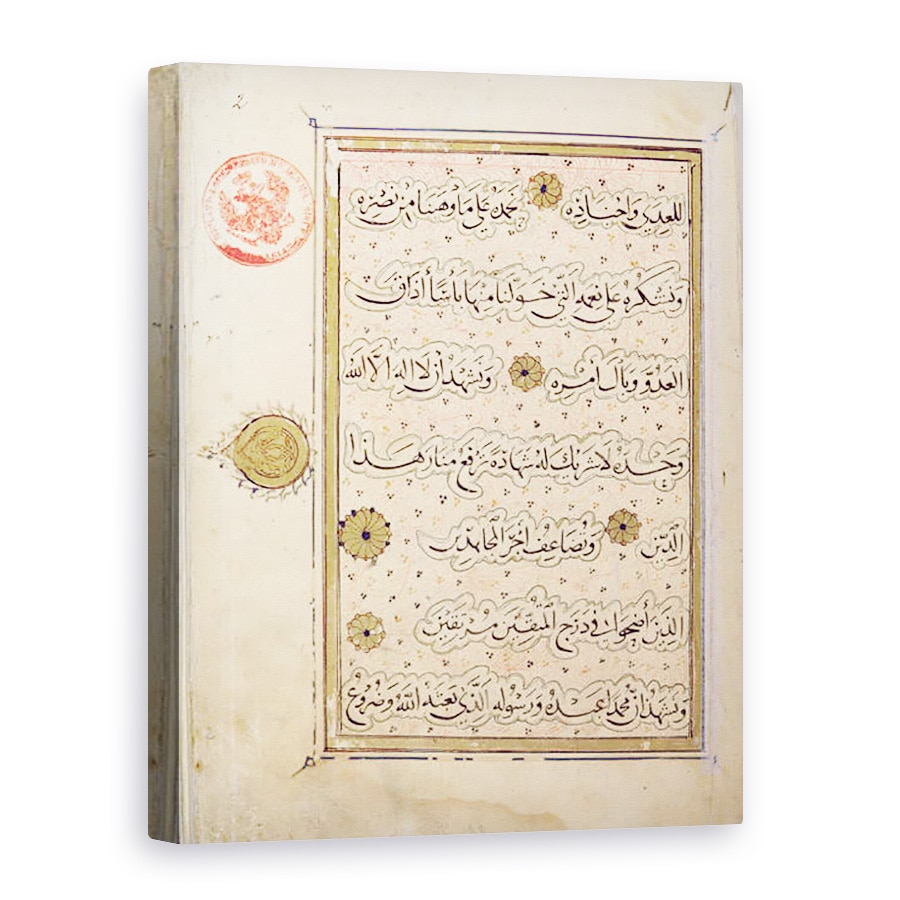 2
نحمده على ما وهبنا من نصره
ونشكره على نعمه التي خولنا منها بأسا أذاق
العدو وبال أمره ونشهد أن لا إله إلا الله
وحده لا شريك له شهادة ترفع منار هذا
الدين وتضاعف أجر المجاهدين
الذين أضحوا في درج المتقين مرتقين
ونشهد أن محمدا عبده ورسوله الذي بعثه الله وضروع